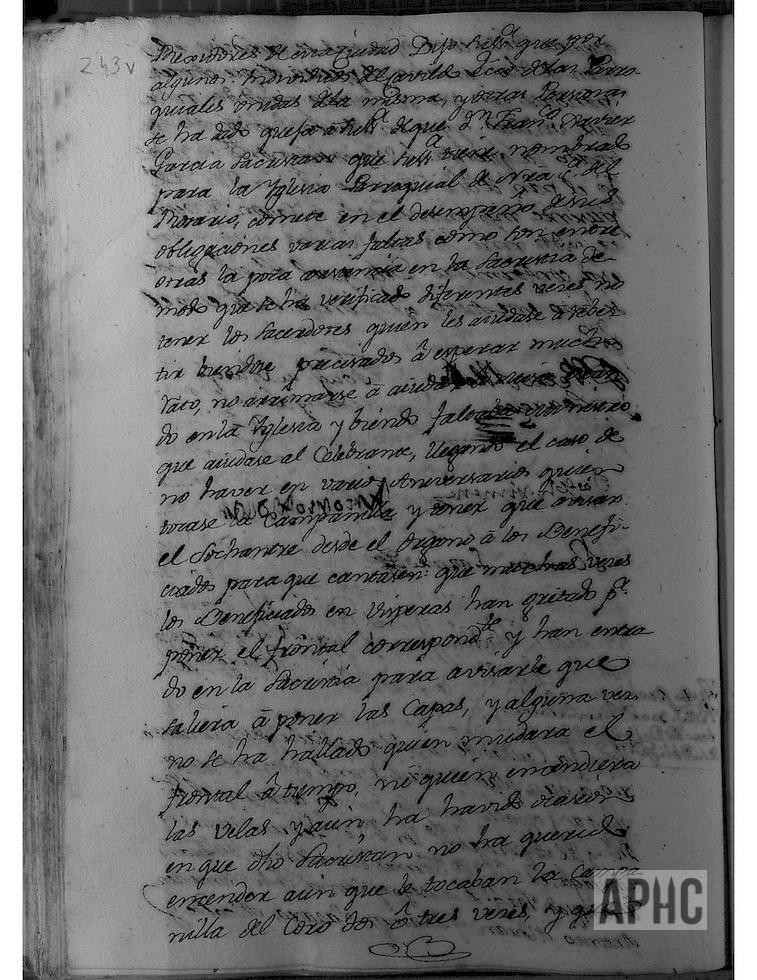 243v
Rexidores de esta Ciudad Dijo Su Sª que por
algunos Individuos del Cavildo Ecco de las Parro-
quiales unidas de la misma, y otras Personas
se ha dado quejas a Su Sª de que Dn Franco Xavier
Garcia Sacristan que Su Sª tiene nombrado
para la Yglesia Parroquial de Nra Sª del
Rosario, comete en el desempeño de sus
obligaciones varias faltas como son entre
otras la poca asistencia en la Sacristia de
modo que se ha verificado diferentes veces no
tener los Sacerdotes quien les aiudase a rebes-
tir biendose precisados â esperar mucho
rato, no arrimarse â aiudar
do en la Yglesia y biendo
que aiudase al Celebrante, llegando el caso de
no haver en varios Aniversarios quien
tocase la Campanilla y tener que avisar
el Sochantre desde el Organo â los Benefi-
ciados para que cantasen: que muchas veces
los Beneficiados en Visperas han gritado pª
poner el frontal correspondte y han entra
do en la Sacristia para avisarle que
saliera â poner las Capas, y alguna vez
no se ha hallado quien mudara el
frontal â tiempo, ni quien encendiera
las velas, y aun ha havido ocasion
en que dho Sacristan no ha querido
encender aun que le tocaban la Campa
nilla del Coro dos ô tres veces, y
APHC